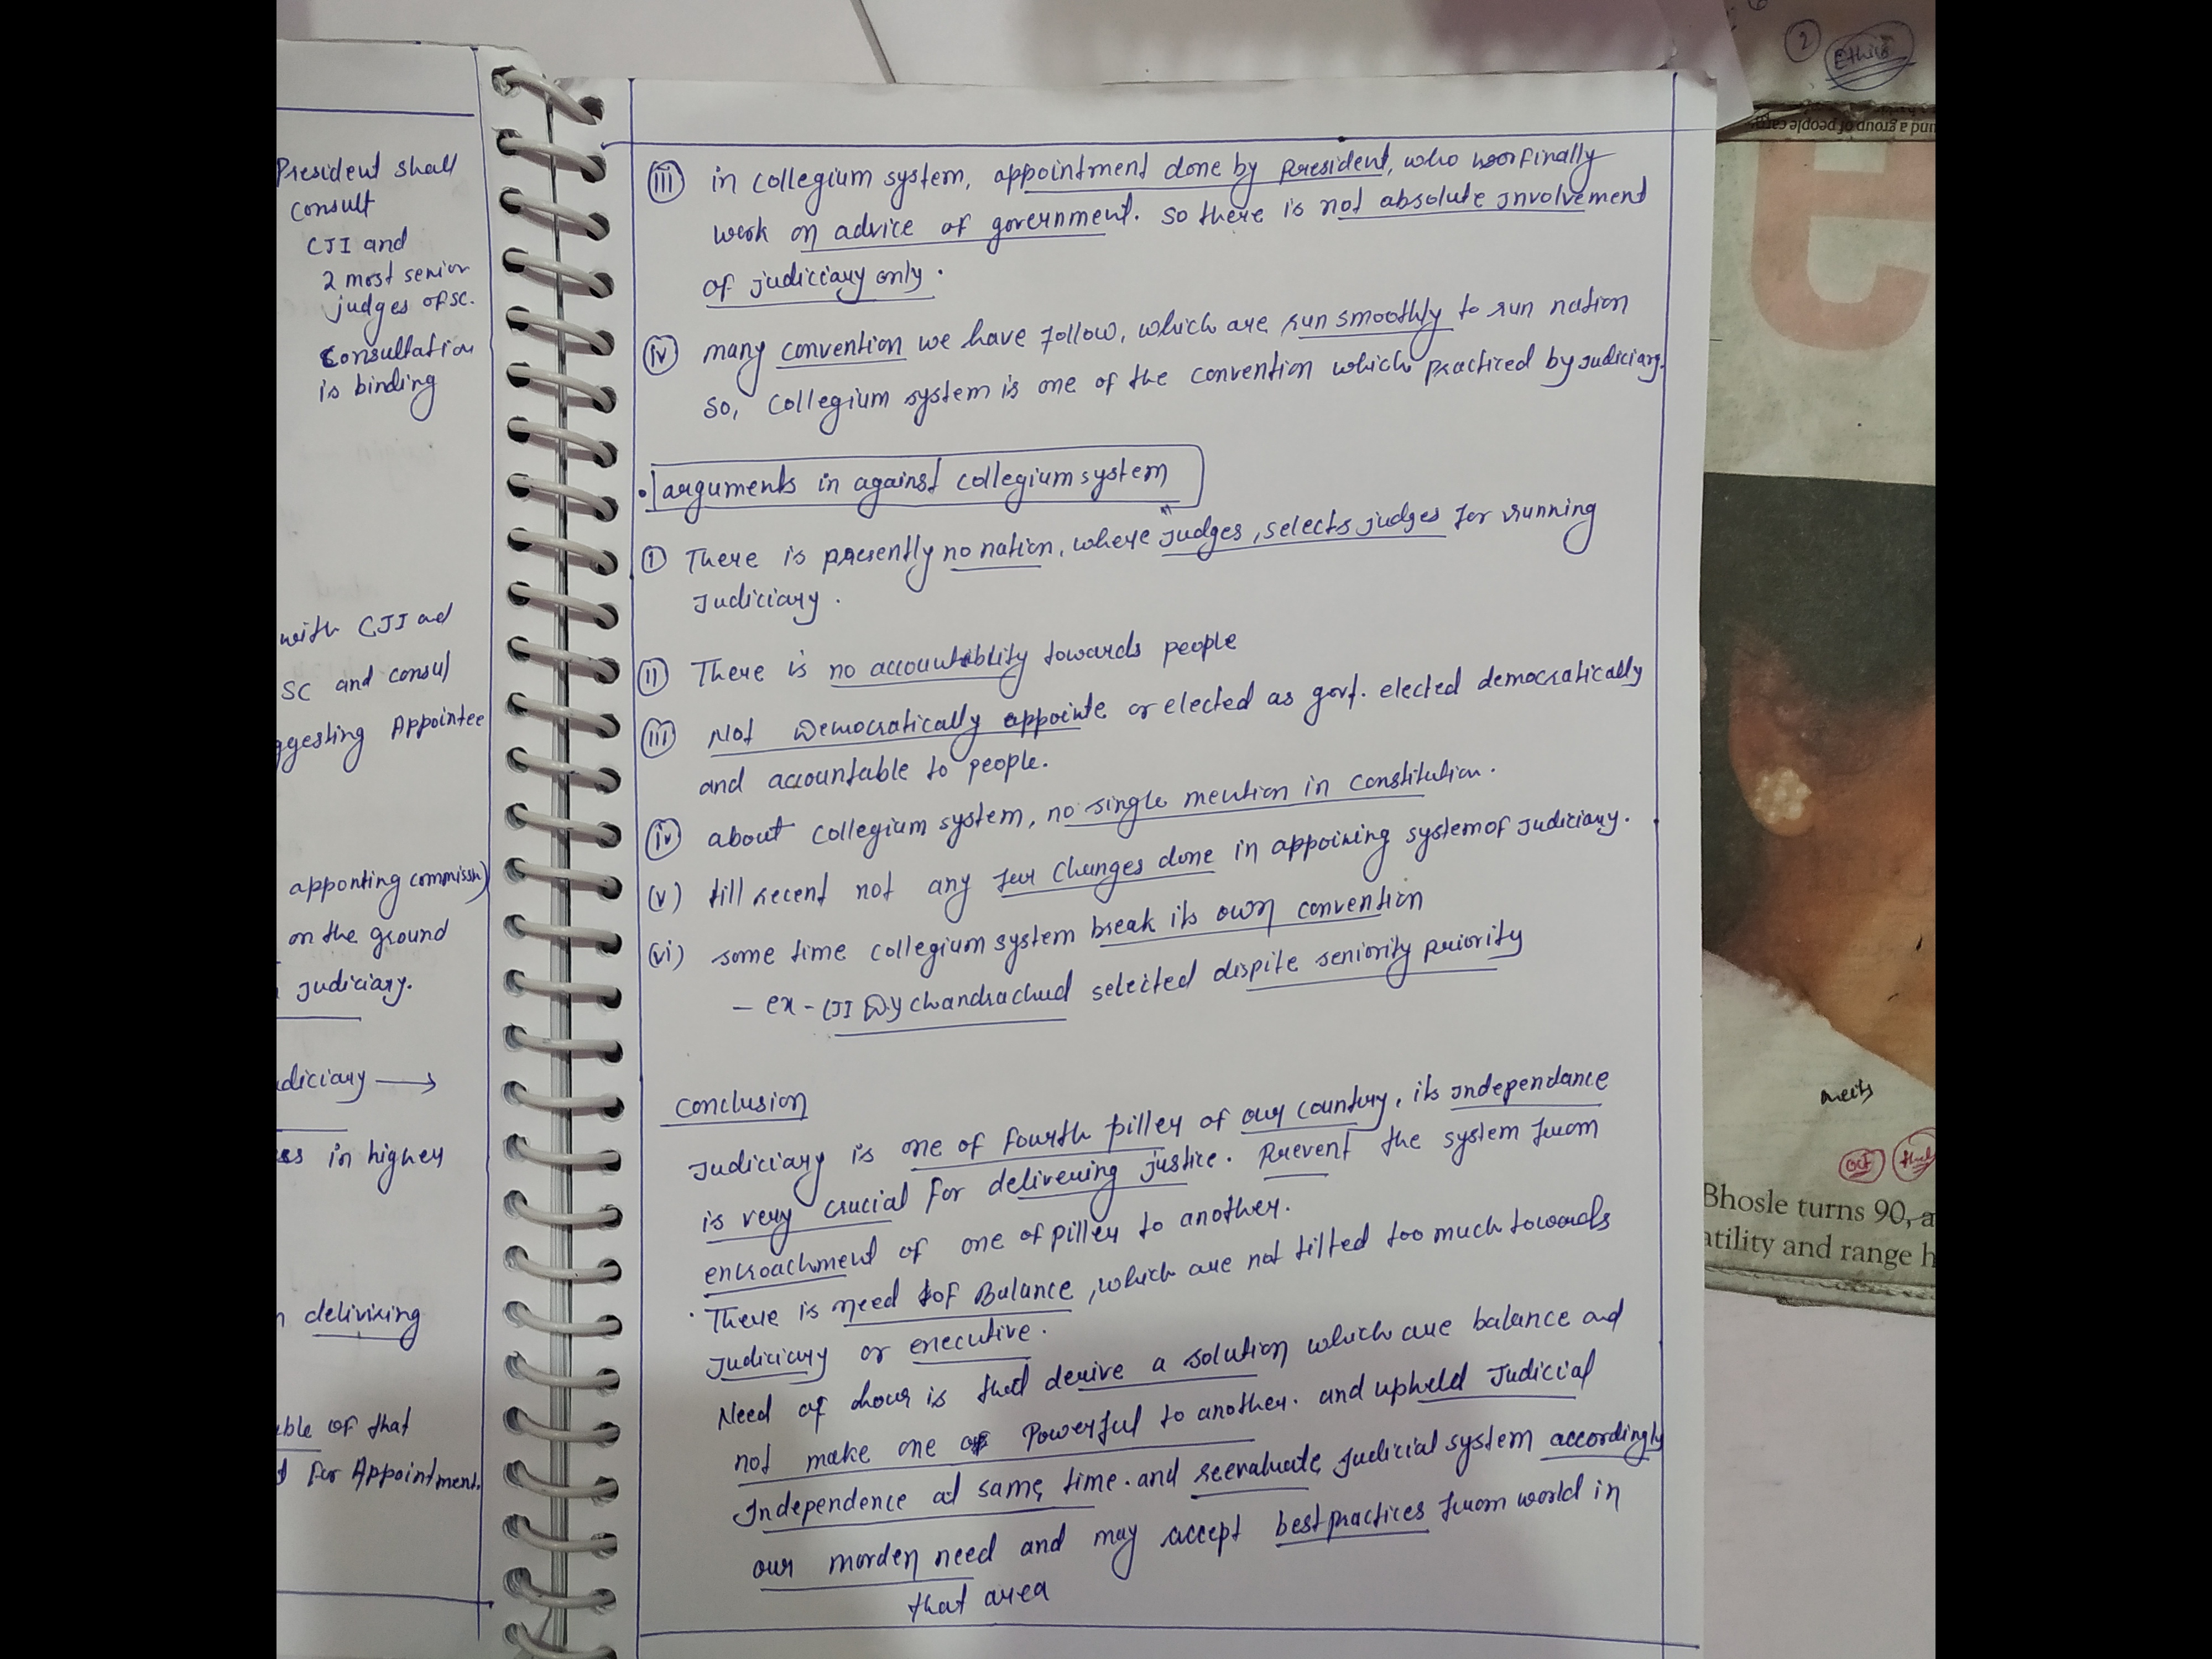 President shall
consult
CJI and
2 most senior
judges of SC.
Consultation
is binding
with CJI ad
SC and consul
ggesting Appointee
apponting commissn)
on the ground
judiciary.
diciary →
in higher
delivixing
of that
for Appointment.
(iii) in collegium system, appointment done by President, who finally
work on advice of government. so there is not absolute involvement
of judiciary only.
(iv) many convention we have follow, which are run smoothly to run nation
so, collegium system is one of the convention which practiced by Judiciary.
• arguments in against collegium system
(i) There is presently no nation, where "judges, selects judges for running
Judiciary.
(ii) There is no accountablity towards people
(iii) Not Democratically appointe or elected as govt. elected democratically
and accountable to people.
(iv) about collegium system, no single mention in constitution.
(v) till recent not any few changes done in appoining system of Judiciary.
(vi) some time collegium system break its own convention
- ex - CJI Dy chandrachud selected dispite seniority priority
Conclusion
Judiciary is one of fourth piller of our country, its Independance
is very crucial for delivering justice. Prevent the system from
encroachment of one of piller to another.
• There is need of Balance, which are not tilted too much towards
Judiciary or executive.
Need of hour is that derive a solution which are balance and
not make one Powerful to another. and upheld Judicial
Independence at same time. and reevaluate judicial system accordingly
our morden need and may accept best practices from world in
that area
2
Ethics
und a group of people
meets
Bhosle turns 90, a
atility and range h